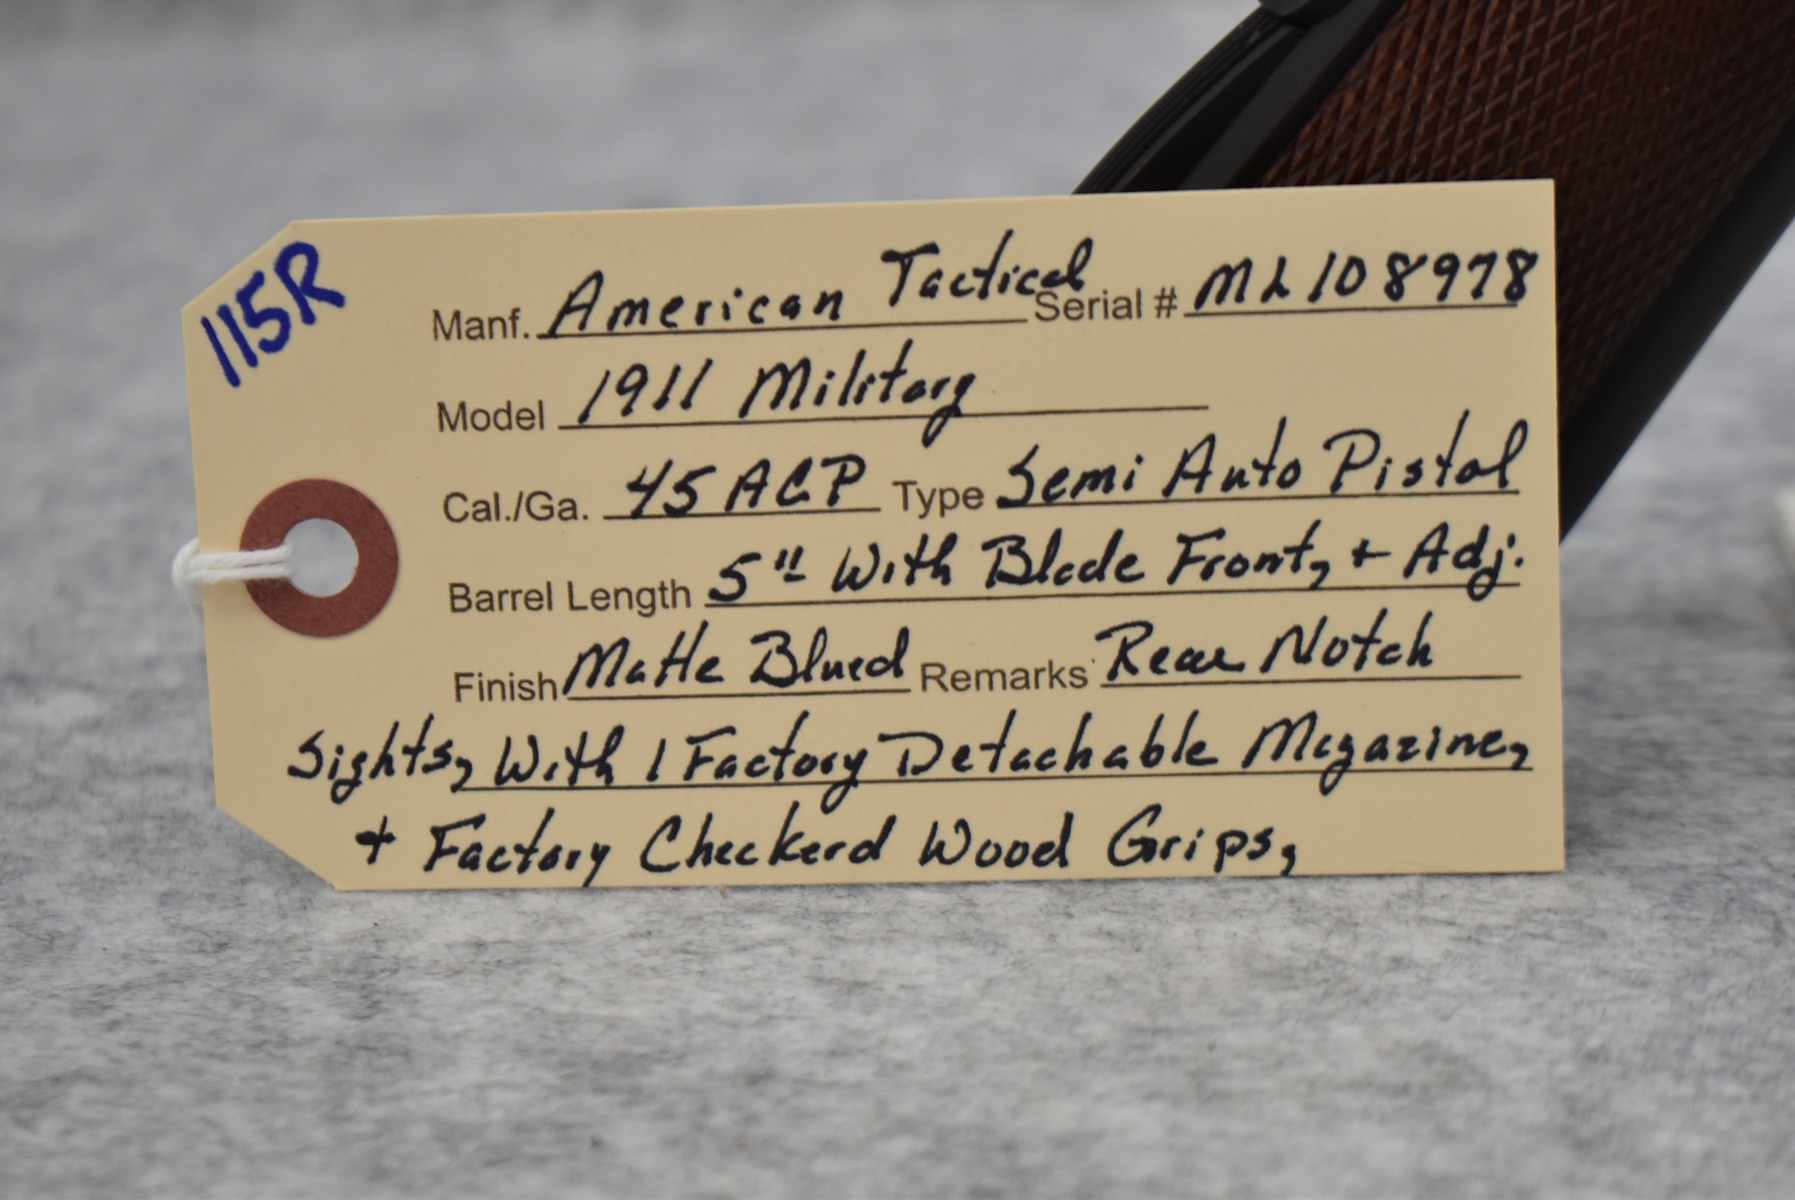 115R
Manf. American Tactical Serial # ML108978
Model 1911 Military
Cal./Ga. 45 ACP Type Semi Auto Pistol
Barrel Length 5" With Blade Front, + Adj.
Finish Matte Blued Remarks Rear Notch
Sights, With 1 Factory Detachable Magazine,
+ Factory Checkerd Wood Grips,